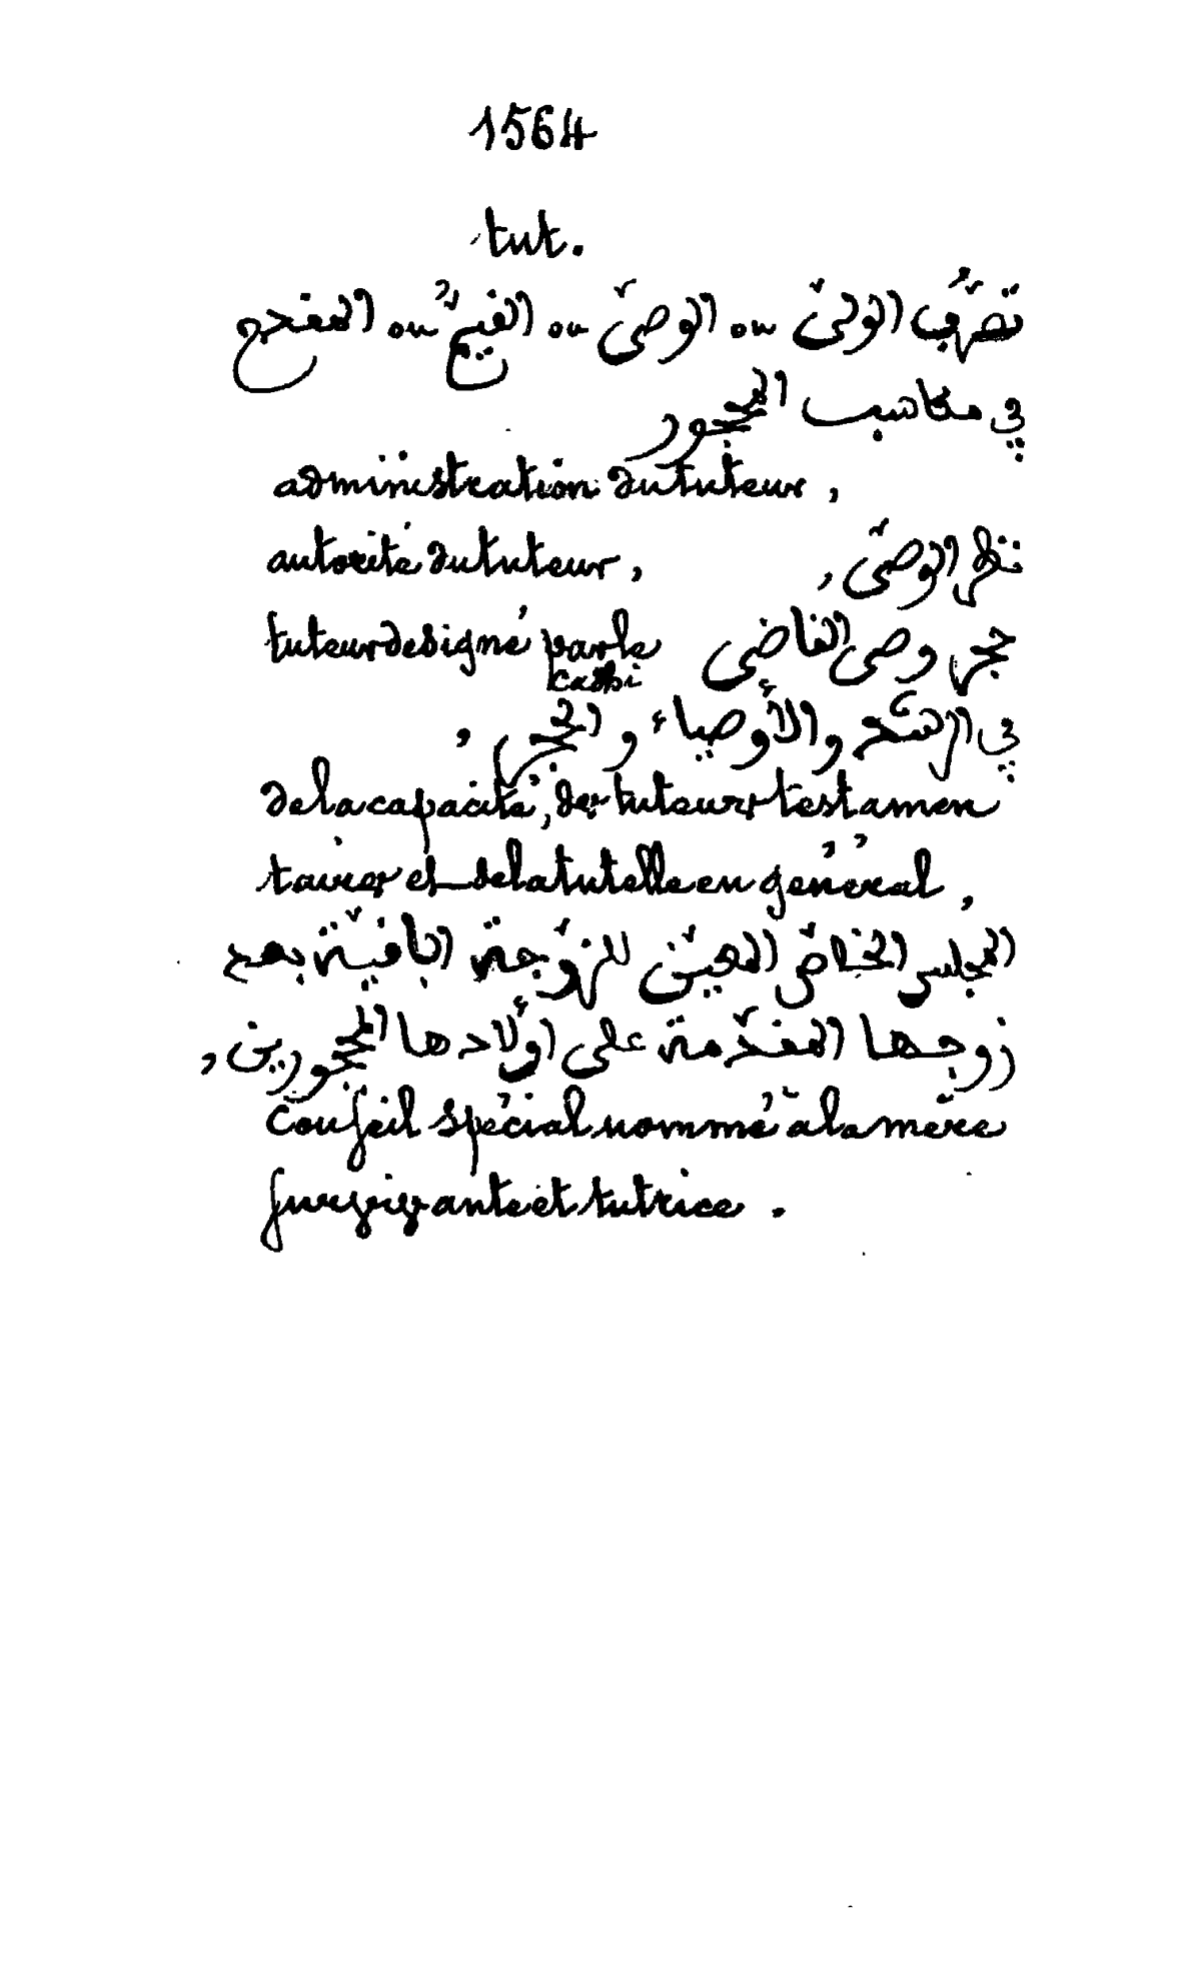 1564
tut.
تصرُّف الوليّ ou الوصيّ ou القيّم ou المقدم
في مكاسب المحجور
administration du tuteur,
autorité du tuteur, نظر الوصيّ,
tuteur désigné par le cadhi حجر وصي القاضي
في الرشد والأوصياء والحجر,
de la capacité, des tuteurs testamen
taires et de la tutelle en général,
المجلس الخاصّ المعيّن للزوّجة الباقيّة بعد
زوجها المقدّمة على أولادها المحجورين,
Conseil spécial nommé à la mère
survivante et tutrice.